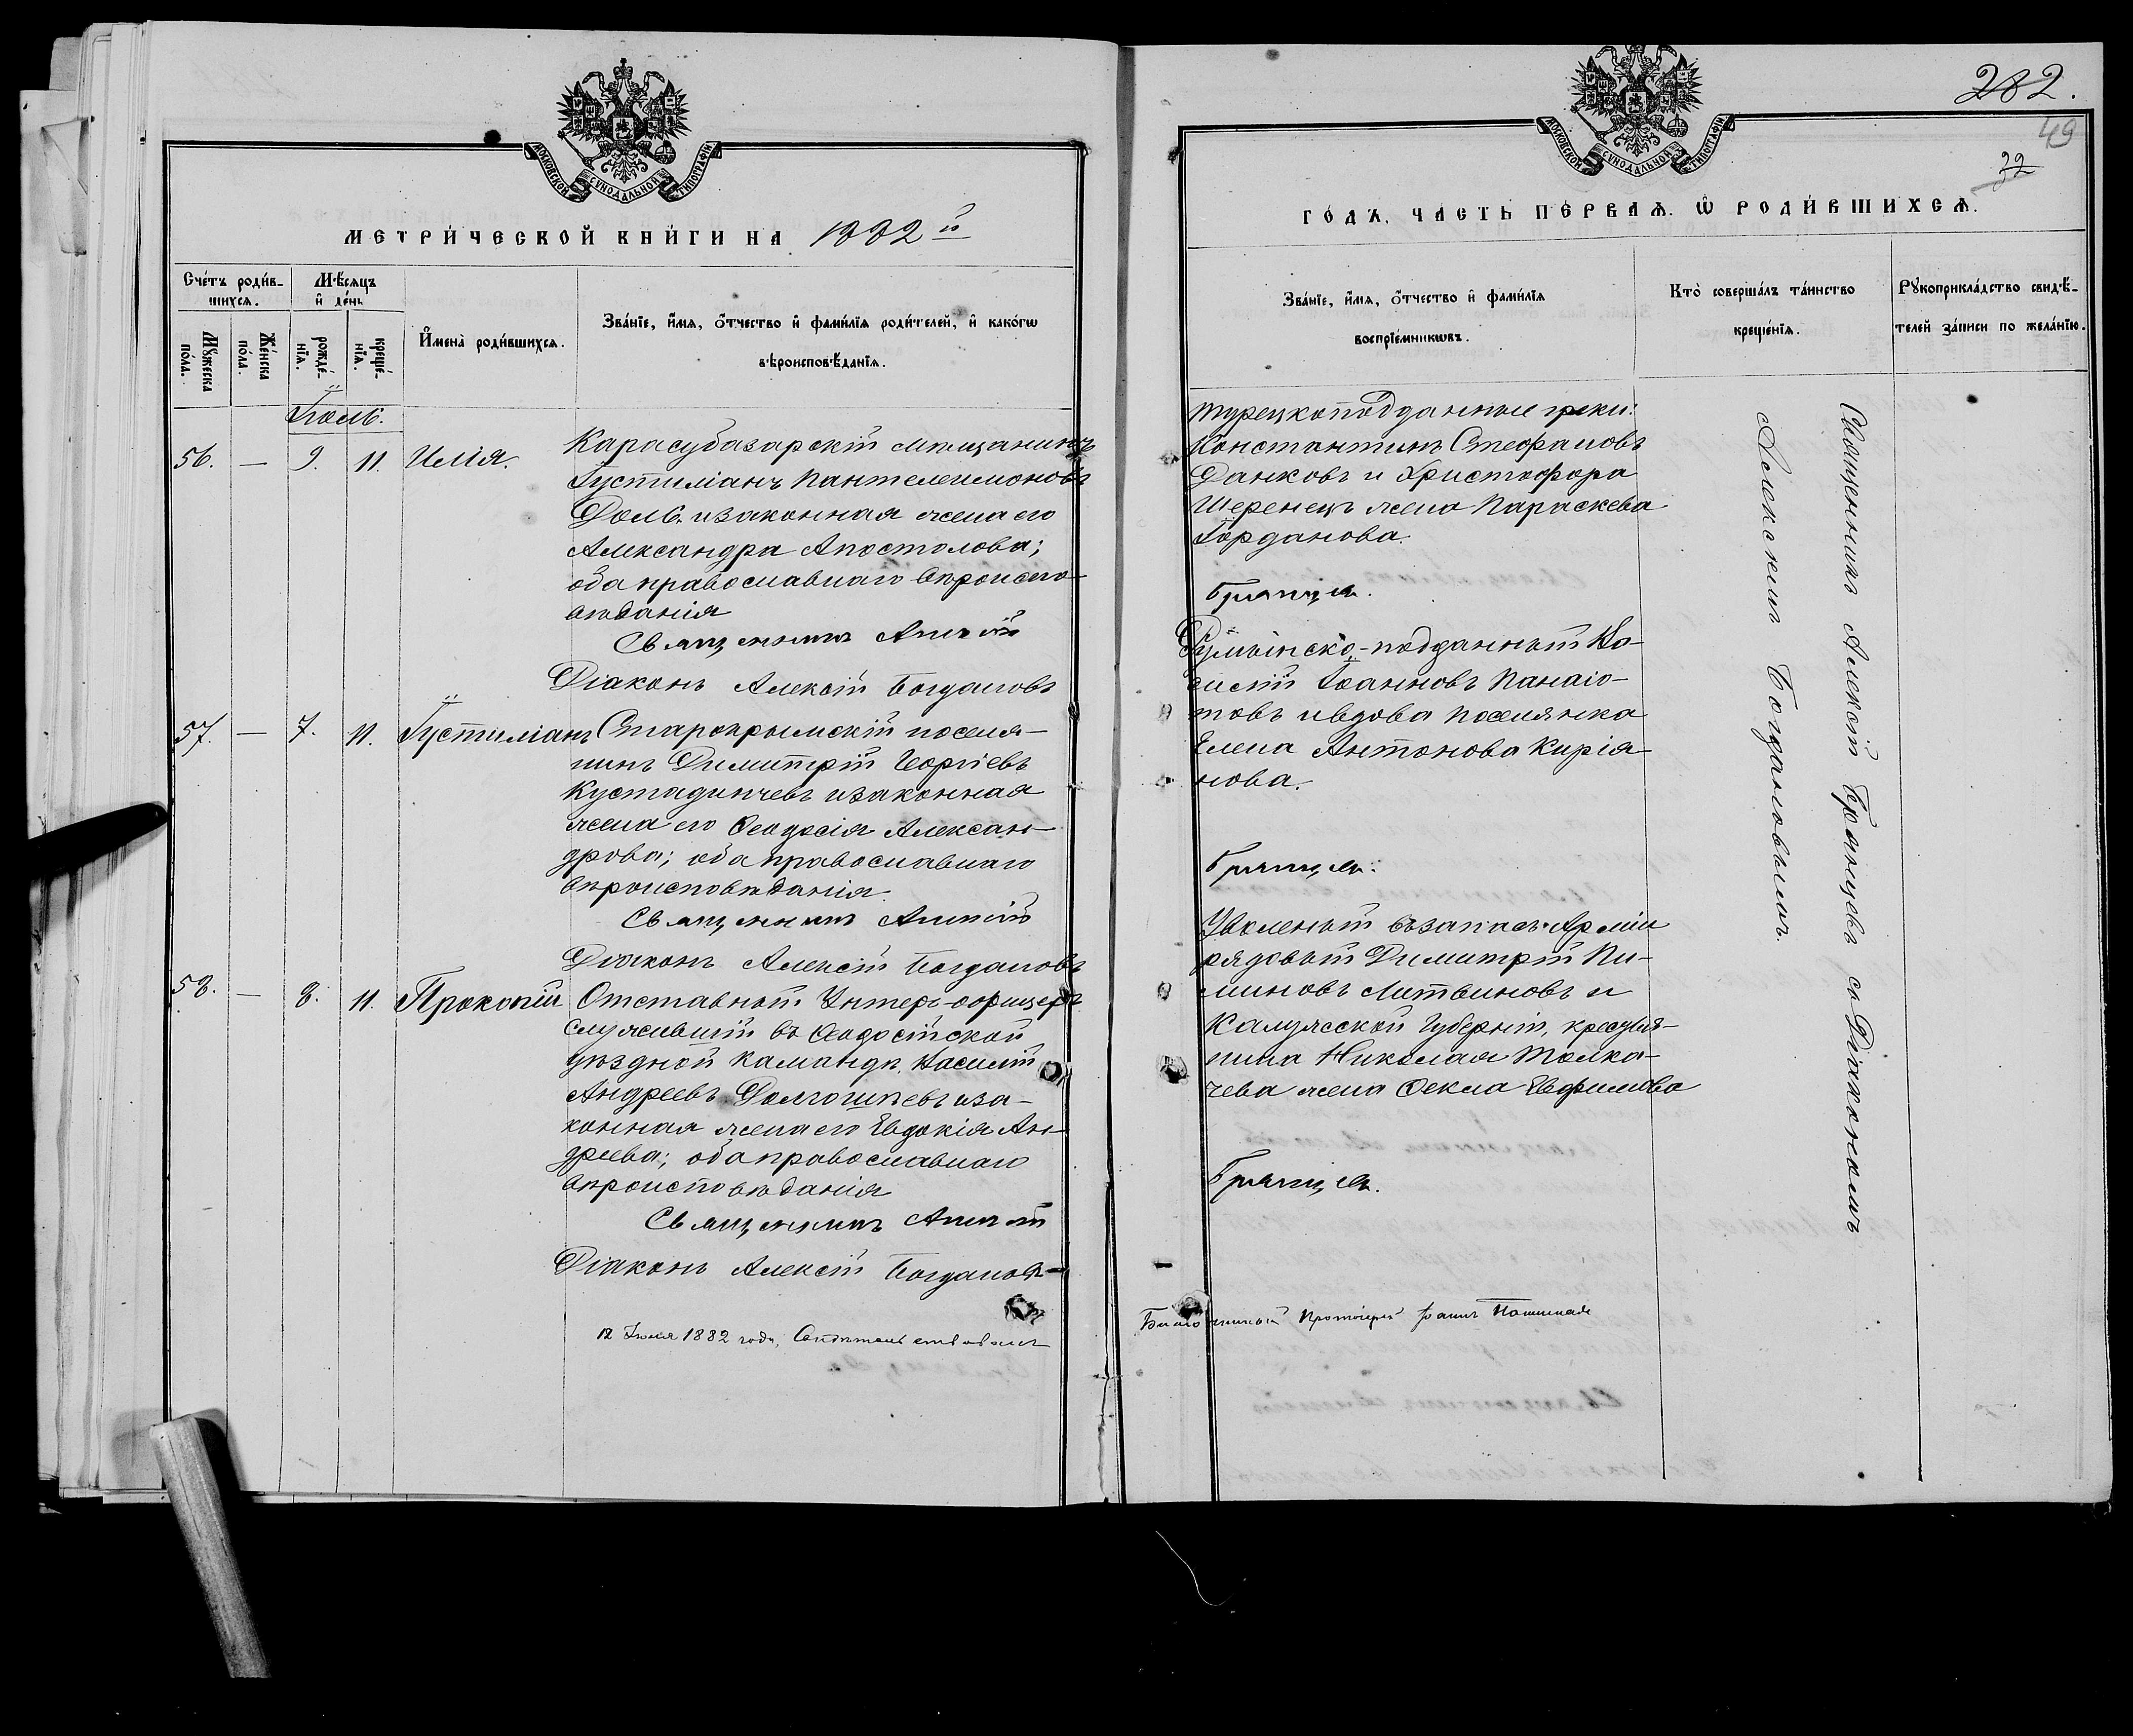 МОСКОВСКОЙ СѴНОДАЛЬНОЙ ТИПОГРАФІИ
МЕТРИ́ЧЕСКОЙ КНИ́ГИ НА 1882 й
Сче́тъ роди́в-
шихся.
Мѣ́сяцъ
и҆ де́нь
Мꙋ́жеска по́ла.
Же́нска по́ла.
рожде́-
нїя.
креще́-
нїя.
И҆мена̀ роди́вшихся.
Зва́нїе, и҆́мя, ѻ҆́тчество и҆ фами́лїя роди́телей, и҆ како́гѡ
вѣроисповѣ́данїя.
Іюль.
56. — 9. 11. Илія.
Карасубазарскій мѣщанинъ
Іустиліанъ Пантелеимоновъ
Доль и законная жена его
Александра Апостолова;
оба православнаго вѣроиспо-
вѣданія
Священникъ Алексій
Діаконъ Алексій Богдановъ
57. — 7. 11. Іустиліанъ
Старокрымскій поселя-
нинъ Димитрій Георгіевъ
Кустадинчевъ и законная
жена его Ѳеодосія Алексан-
дрова; оба православнаго
вѣроисповѣданія.
Священникъ Алексій
Діаконъ Алексій Богдановъ
58. — 8. 11. Прокопій
Отставный Унтеръ-офицеръ
служившій въ Ѳеодосійской
уѣздной камандѣ, Василій
Андреевъ Долгошеевъ и за-
конная жена его Евдокія Ан-
дреева; оба православнаго
вѣроисповѣданія
Священникъ Алексій
Діаконъ Алексій Богдановъ
12 Іюля 1882 года, Свидѣтельствовалъ
МОСКОВСКОЙ СѴНОДАЛЬНОЙ ТИПОГРАФІИ
282.
49
32
ГО́ДЪ. ЧА́СТЬ ПЕ́РВАЯ. Ѡ҆ РОДИ́ВШИХСЯ.
Зва́нїе, и҆́мя, ѻ҆́тчество и҆ фами́лїя
воспрїе́мникѡвъ.
Кто̀ соверша́лъ та́инство
креще́нїя.
Рꙋкоприкла́дство свидѣ́-
телей за́писи по жела́нїю.
турецкоподданные греки:
Константинъ Стефановъ
Данковъ и Христофора
Шеренецъ жена Параскева
Іорданова.
Брянцевъ.
Румынско-подданный Ва-
силій Іоанновъ Панаіо-
товъ и вдова поселянка
Елена Антонова Кирія-
нова.
Брянцевъ.
Уволеный въ запасъ Арміи
рядовый Димитрій Пи-
миновъ Литвиновъ и
Калужской Губерніи, крестья-
нина Николая Толка-
чева жена Ѳекла Евфимова
Брянцевъ.
Благочинный Протоіерей Іоаннъ
Священникъ Алексій Брянцевъ съ Діакономъ
Алексіемъ Богдановымъ.